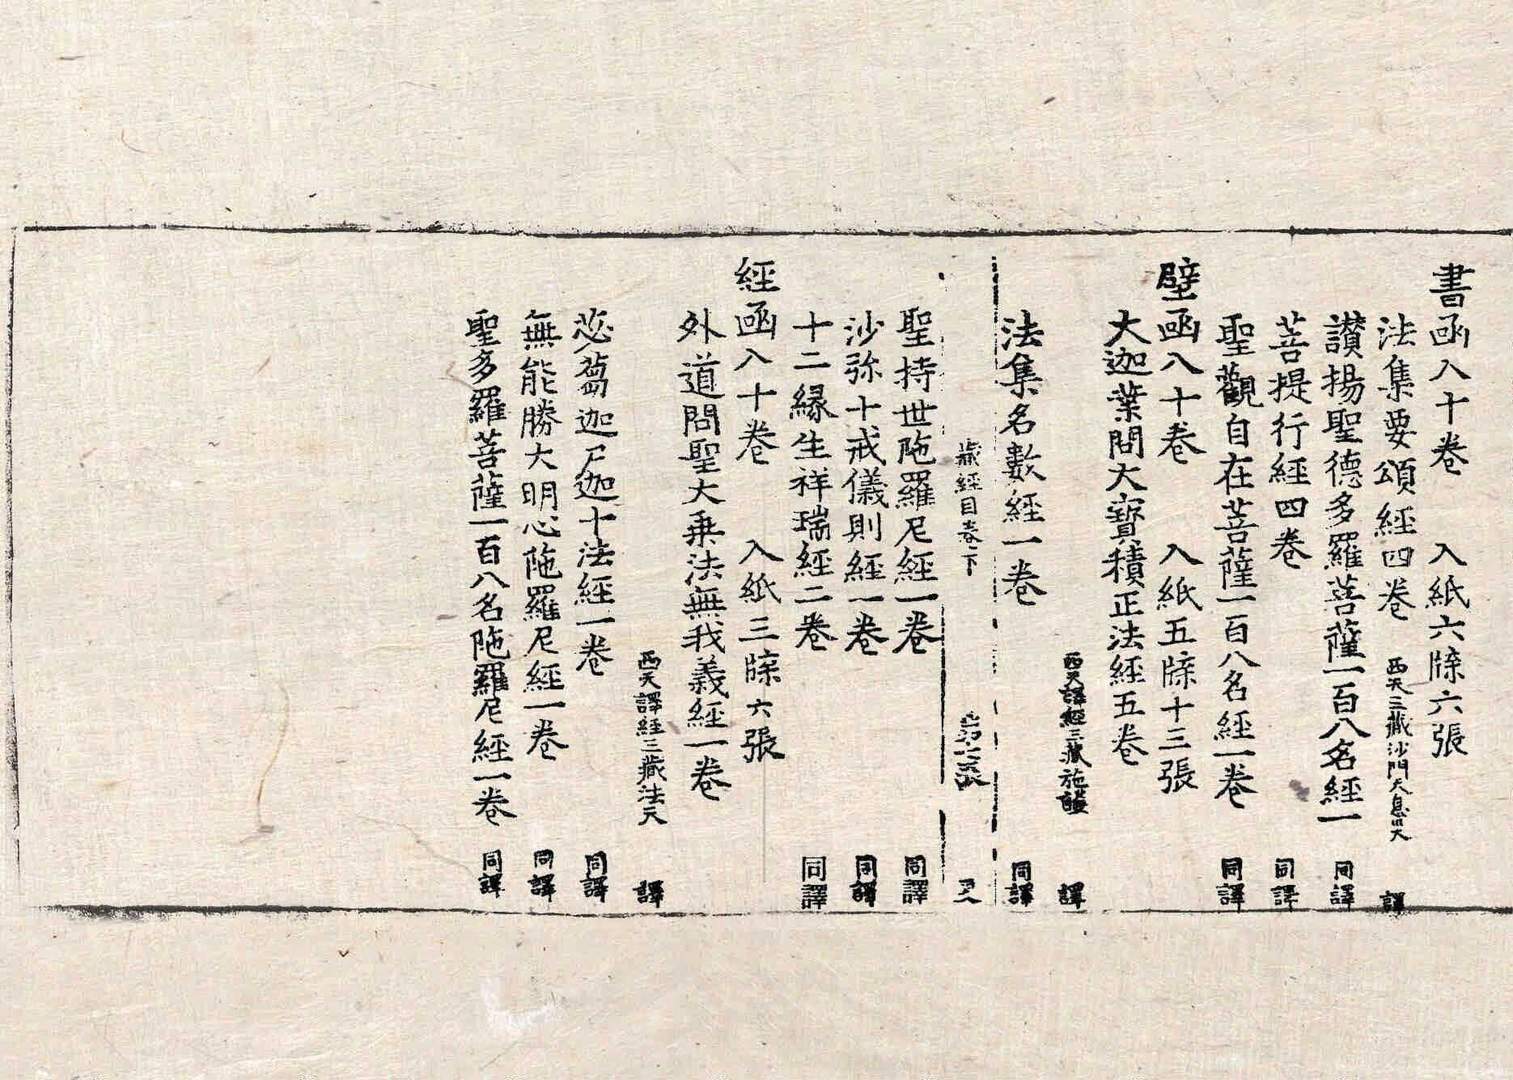 書函入十卷 入紙六牒六張
法集要頌經四卷 西天三藏沙門天息灾 譯
讃揚聖德多羅菩薩一百八名經一 同譯
菩提行經四卷 同譯
聖觀自在菩薩一百八名經一卷 同譯
壁函入十卷 入紙五牒十三張
大迦葉問大寶積正法經五卷
西天譯經三藏施護 譯
法集名數經一卷 同譯
藏經目卷下
聖持世陁羅尼經一卷 同譯
沙弥十戒儀則經一卷 同譯
十二緣生祥瑞經二卷 同譯
經函入十卷 入紙三牒六張
外道問聖大乗法無我義經一卷
西天譯經三藏法天 譯
苾蒭迦尸迦十法經一卷 同譯
無能勝大明心陁羅尼經一卷 同譯
聖多羅菩薩一百八名陁羅尼經一卷 同譯